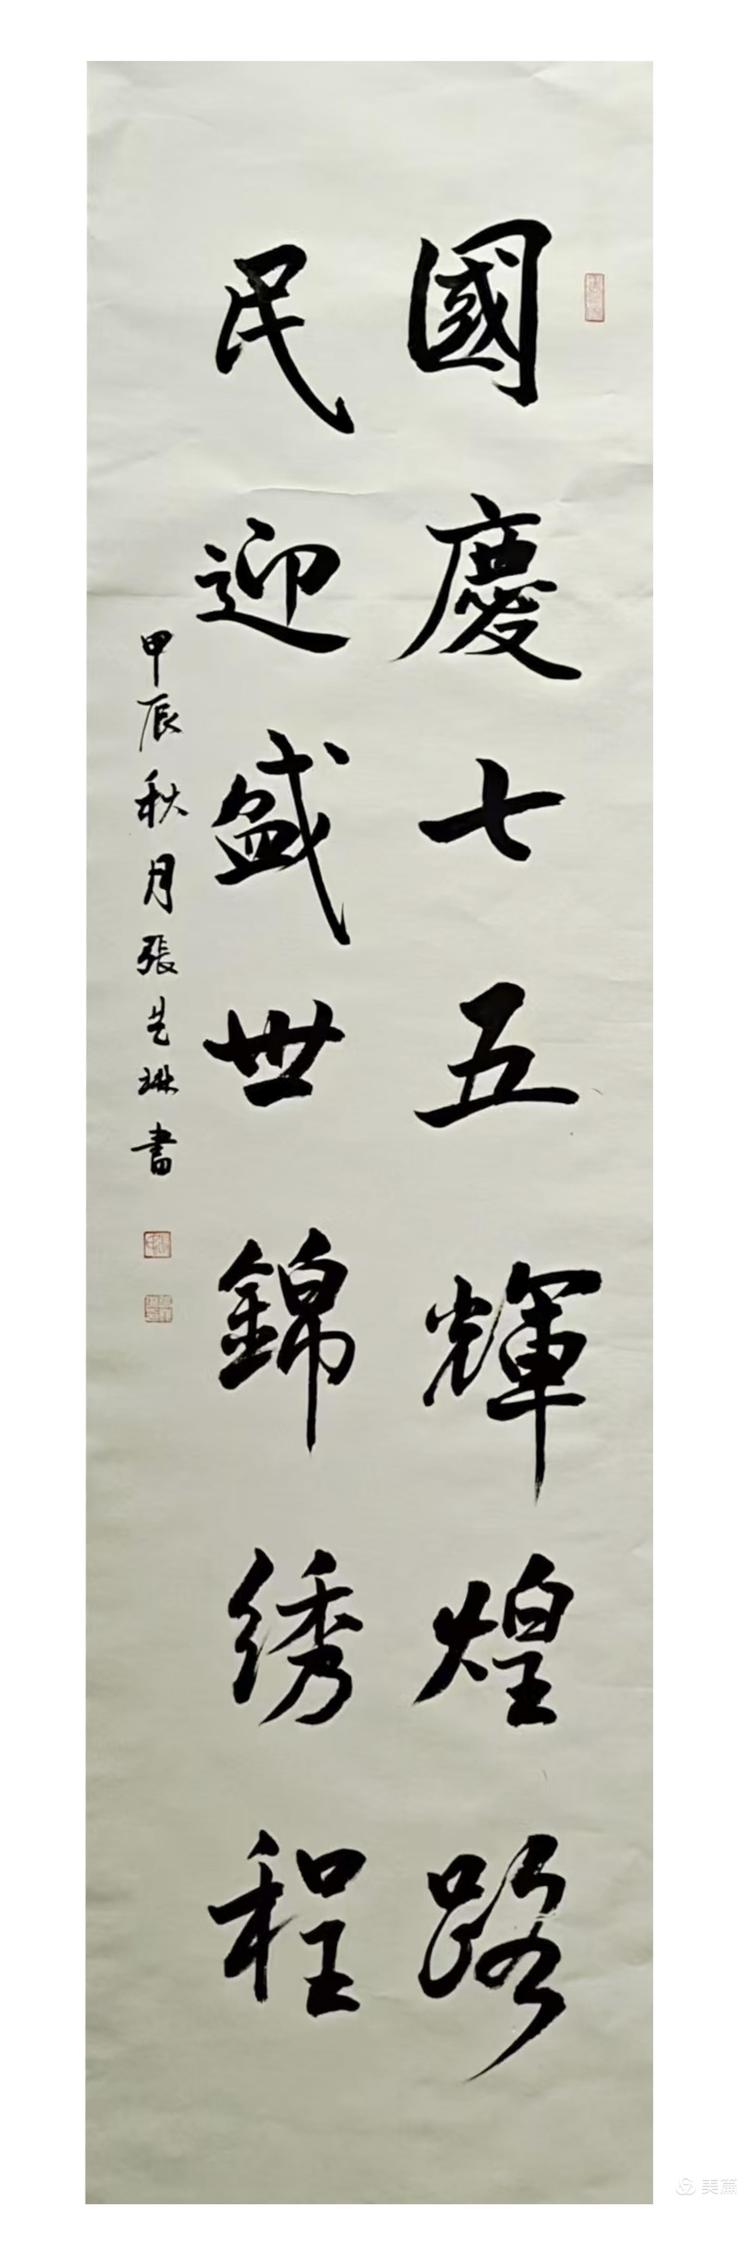 國慶七五輝煌路
民迎盛世錦绣程
甲辰秋月張先琳書
美篇